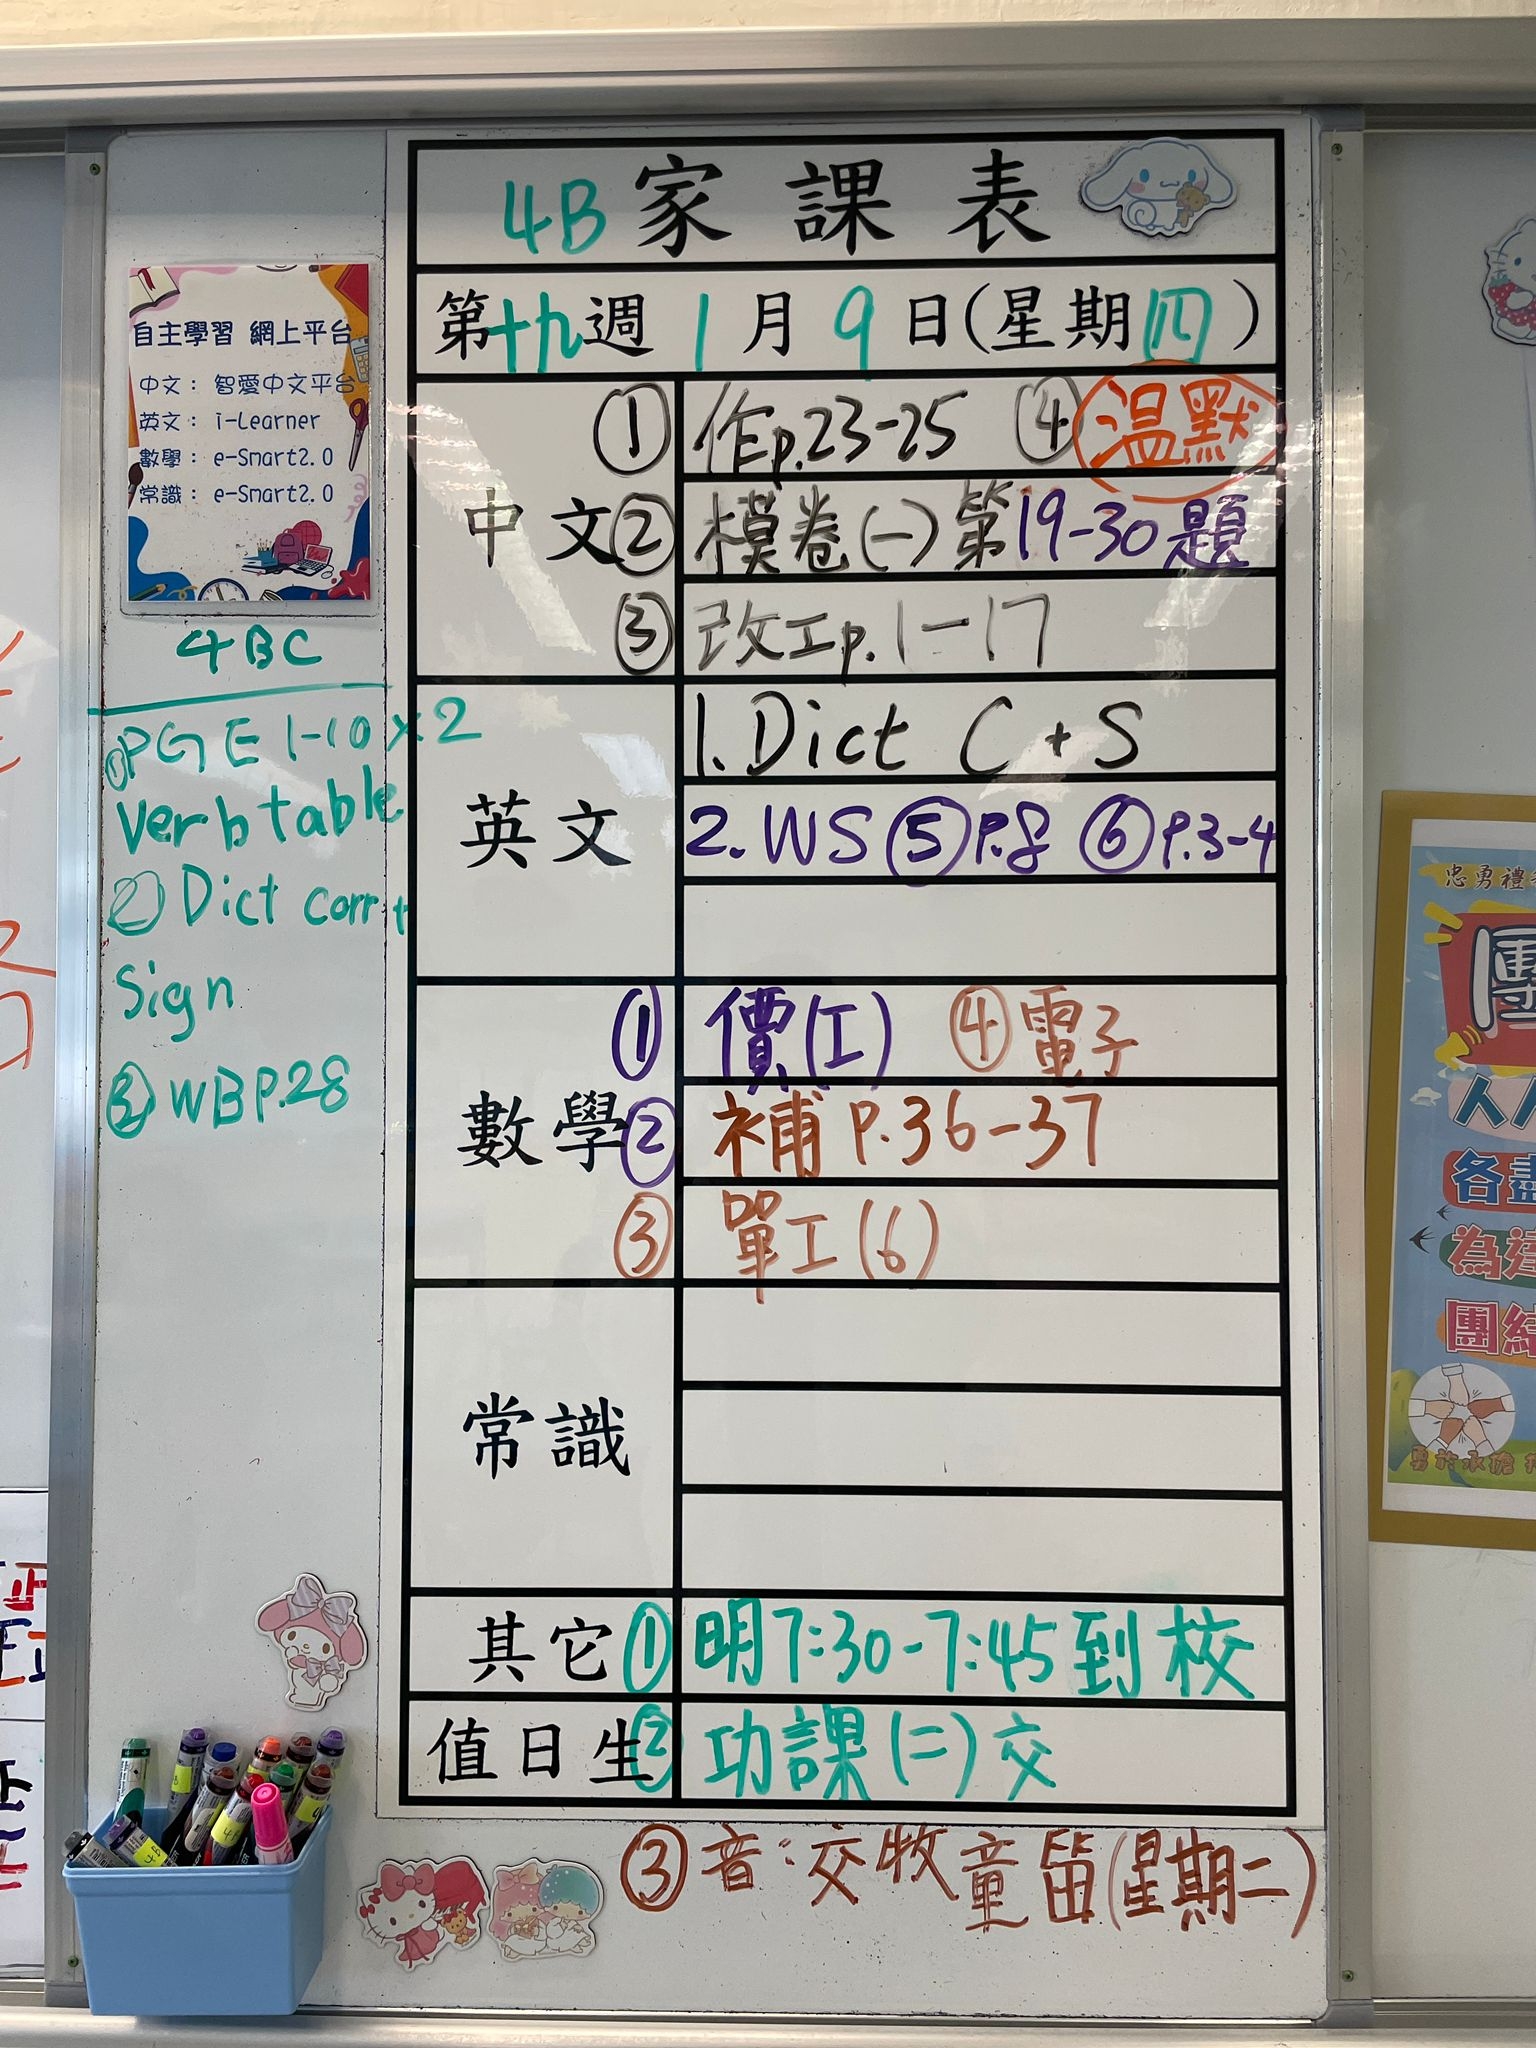 4B 家課表
第十九週 1月9日(星期四)
中文
① 作p.23-25 ④ 温默
② 模卷(一)第19-30題
③ 改工p.1-17
英文
1. Dict C+S
2. WS ⑤P.8 ⑥P.3-4
數學
① 價(工) ④電子
② 補 P.36-37
③ 單工(6)
常識
其它 ① 明7:30-7:45到校
值日生 ② 功課(二)交
③ 音:交牧童笛(星期二)
自主學習 網上平台
中文: 智愛中文平台
英文: i-Learner
數學: e-Smart2.0
常識: e-Smart2.0
4BC
① PGE 1-10 x 2
Verb table
② Dict corr +
Sign
③ WB P.28
忠勇禮
團
人人
各盡
為達
團結
勇於承擔